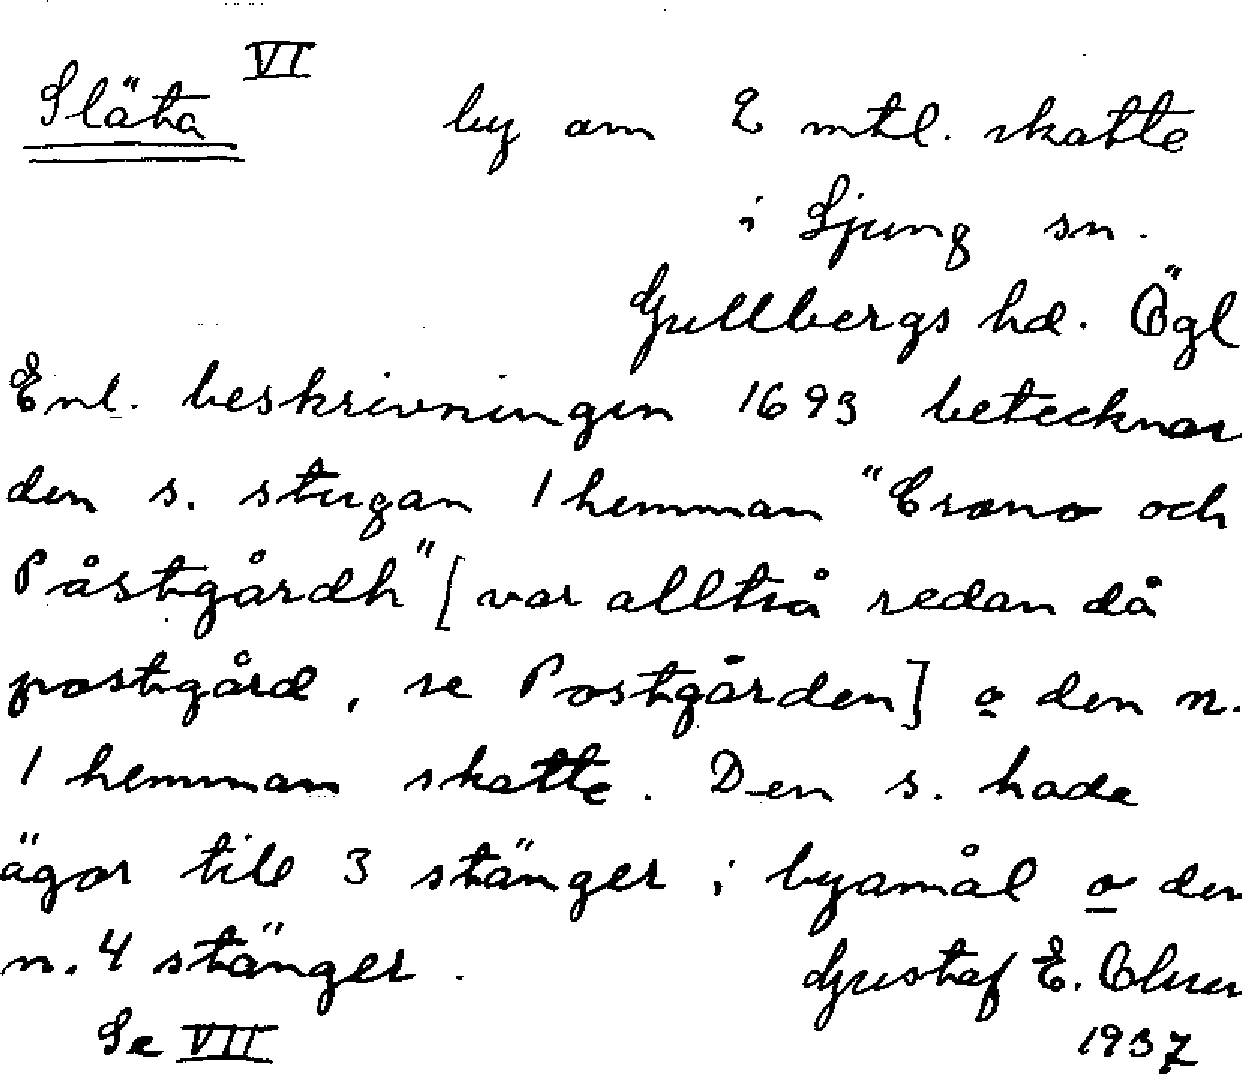 VI
Släta by om 2 mtl. skatte
i Ljung sn.
Gullbergs hd. Ögl
Enl. beskrivningen 1693 betecknar
den s. stugan 1 hemman "Crono och
Påstgårdh" [var alltså redan då
postgård, se Postgården] o den n.
1 hemman skatte. Den s. hade
ägor till 3 stänger i byamål o den
n. 4 stänger. Gustaf E.
Se VII 1937